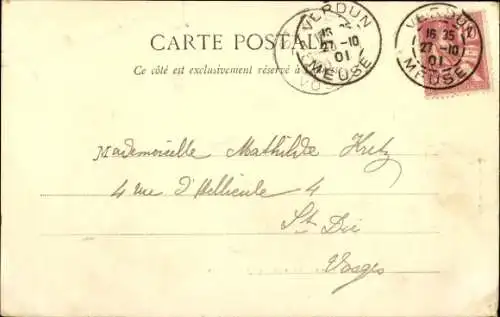 CARTE POSTALE
Ce côté est exclusivement réservé à l'adresse
VERDUN
16 35
27 -10
01
MEUSE
VERDUN
16 35
27 -10
01
MEUSE
Mademoiselle Mathilde Kretz
4 rue d'Hellieule 4
St Dié
Vosges